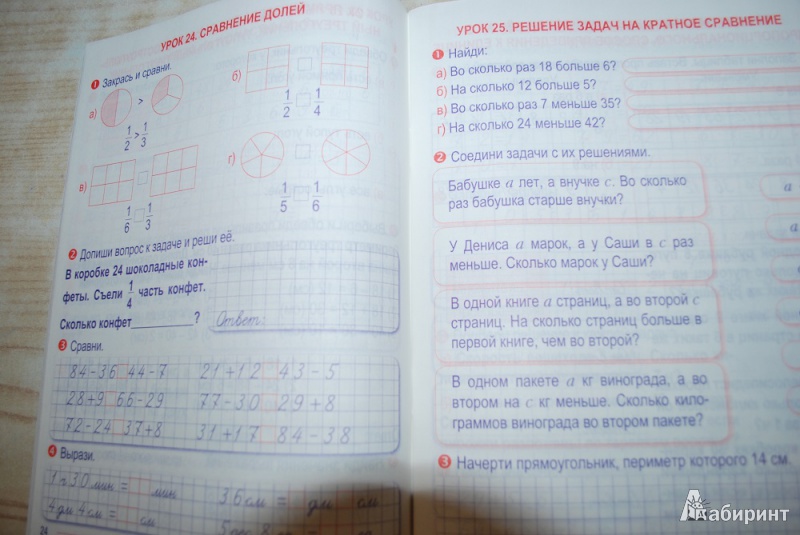 УРОК 24. СРАВНЕНИЕ ДОЛЕЙ
1 Закрась и сравни.
а) >
1/2 > 1/3
б)
1/2 1/4
в)
1/6 1/3
г)
1/5 1/6
2 Допиши вопрос к задаче и реши её.
В коробке 24 шоколадные кон-
феты. Съели 1/4 часть конфет.
Сколько конфет__________?
Ответ:
3 Сравни.
84-36 44-7 21+12 43-5
28+9 66-29 77-30 29+8
72-24 37+8 31+17 84-38
4 Вырази.
1ч 30 мин = мин 36 см = дм см
4 дм 4 см = см
24
УРОК 25. РЕШЕНИЕ ЗАДАЧ НА КРАТНОЕ СРАВНЕНИЕ
1 Найди:
а) Во сколько раз 18 больше 6?
б) На сколько 12 больше 5?
в) Во сколько раз 7 меньше 35?
г) На сколько 24 меньше 42?
2 Соедини задачи с их решениями.
Бабушке a лет, а внучке c. Во сколько
раз бабушка старше внучки?
a
У Дениса a марок, а у Саши в c раз
меньше. Сколько марок у Саши?
a
В одной книге a страниц, а во второй c
страниц. На сколько страниц больше в
первой книге, чем во второй?
В одном пакете a кг винограда, а во
втором на c кг меньше. Сколько кило-
граммов винограда во втором пакете?
3 Начерти прямоугольник, периметр которого 14 см.
Лабиринт